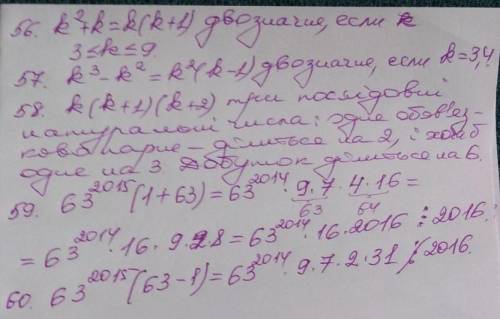 56. k²+k=k(k+1) двозначне, если k
3≤k≤9.
57. k³-k²=k²(k-1) двозначне, если k=3,4
58. k(k+1)(k+2) три послідовні
натуральні числа: одне обов'яз-
ково парне – ділиться на 2, і хоча б
одне на 3. Добуток ділиться на 6.
59. 63²⁰¹⁵(1+63)=63²⁰¹⁴·9·7·4·16=
63 64
=63²⁰¹⁴·16·9·28=63²⁰¹⁴·16·2016⋮2016.
60. 63²⁰¹⁵(63-1)=63²⁰¹⁴·9·7·2·31⋮̸2016.